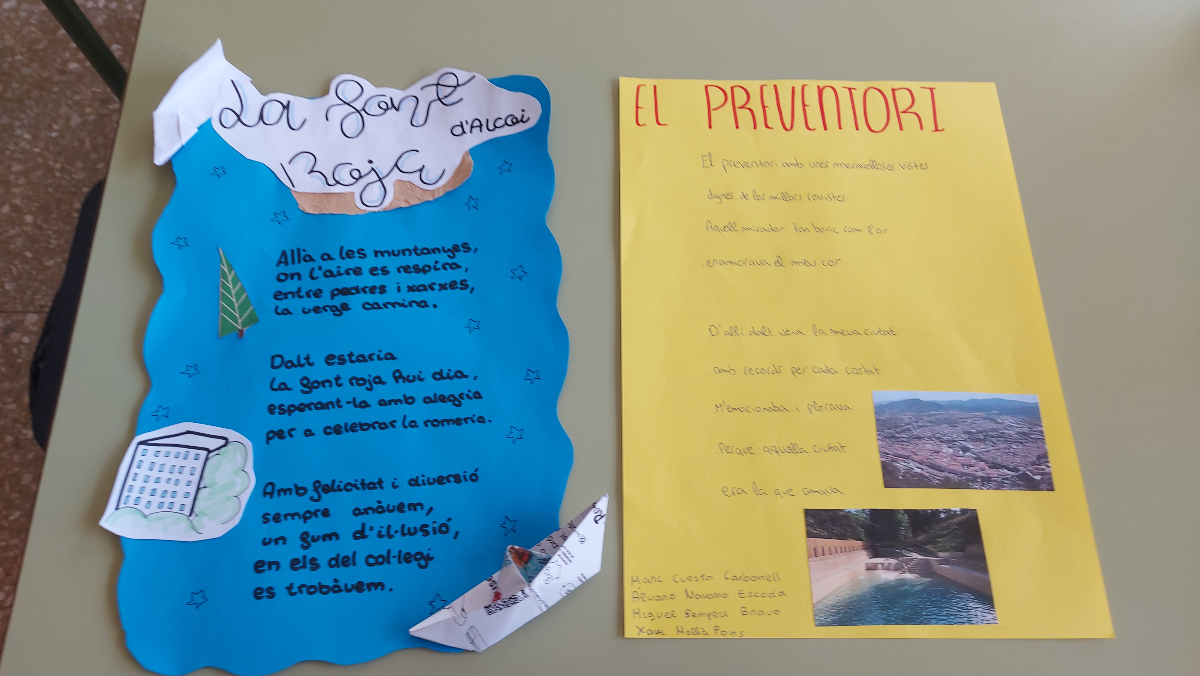 La Font
d'Alcoi
Roja
Allà a les muntanyes,
on l'aire es respira,
entre pedres i xarxes,
la verge camina.
Dalt estaria
la font roja hui dia,
esperant-la amb alegria
per a celebrar la romeria.
Amb felicitat i diversió
sempre anàvem,
un fum d'il·lusió,
en els del col·legi
es trobàvem.
EL PREVENTORI
El preventori amb unes meravelloses vistes
dignes de les millors revistes
Aquell mirador tan bonic com l'or
enamorava el meu cor
D'allí dalt veia la meva ciutat
amb records per cada costat
M'emocionaba i plorava
Perquè aquella ciutat
era la que amava
Marc Cuesta Carbonell
Álvaro Navarro Escoda
Miguel Sempere Bravo
Xavi Mollà Pons